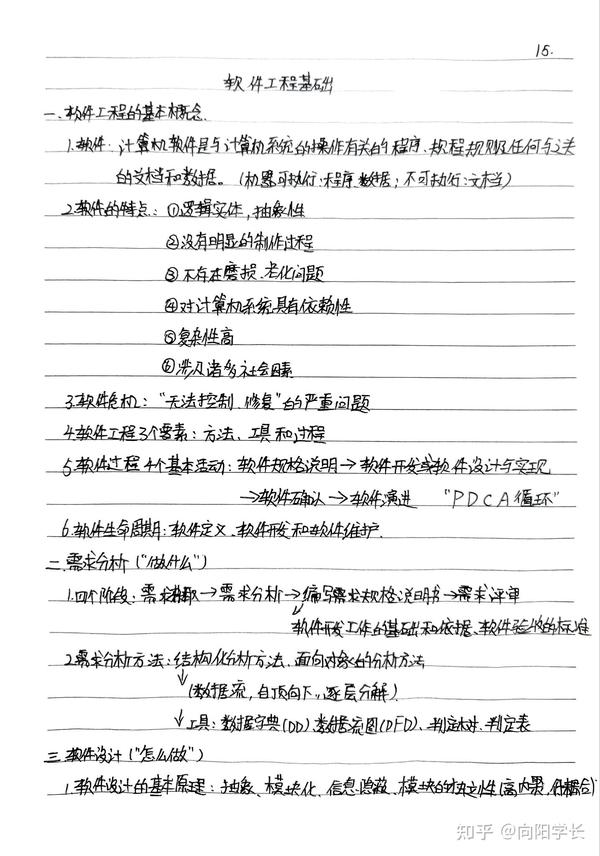 15.
软件工程基础
一.软件工程的基本概念.
1.软件:计算机软件是与计算机系统的操作有关的程序、规程、规则及任何与之有关
的文档和数据。(机器可执行:程序、数据;不可执行:文档)
2.软件的特点:①逻辑实体,抽象性
②没有明显的制作过程
③不存在磨损、老化问题
④对计算机系统具有依赖性
⑤复杂性高
⑥涉及诸多社会因素
3.软件危机:“无法控制、修复”的严重问题
4.软件工程3个要素:方法、工具和过程
5.软件过程4个基本活动:软件规格说明→软件开发或软件设计与实现
→软件确认→软件演进 “PDCA循环”
6.软件生命周期:软件定义、软件开发和软件维护.
二.需求分析(“做什么”)
1.四个阶段:需求获取→需求分析→编写需求规格说明书→需求评审
软件开发工作的基础和依据、软件验收的标准
2.需求分析方法:结构化分析方法、面向对象的分析方法
↓(数据流,自顶向下、逐层分解)
↓工具:数据字典(DD)、数据流图(DFD)、判定树、判定表
三.软件设计(“怎么做”)
1.软件设计的基本原理:抽象、模块化、信息隐蔽、模块的独立性(高内聚,低耦合)
知乎 @向阳学长